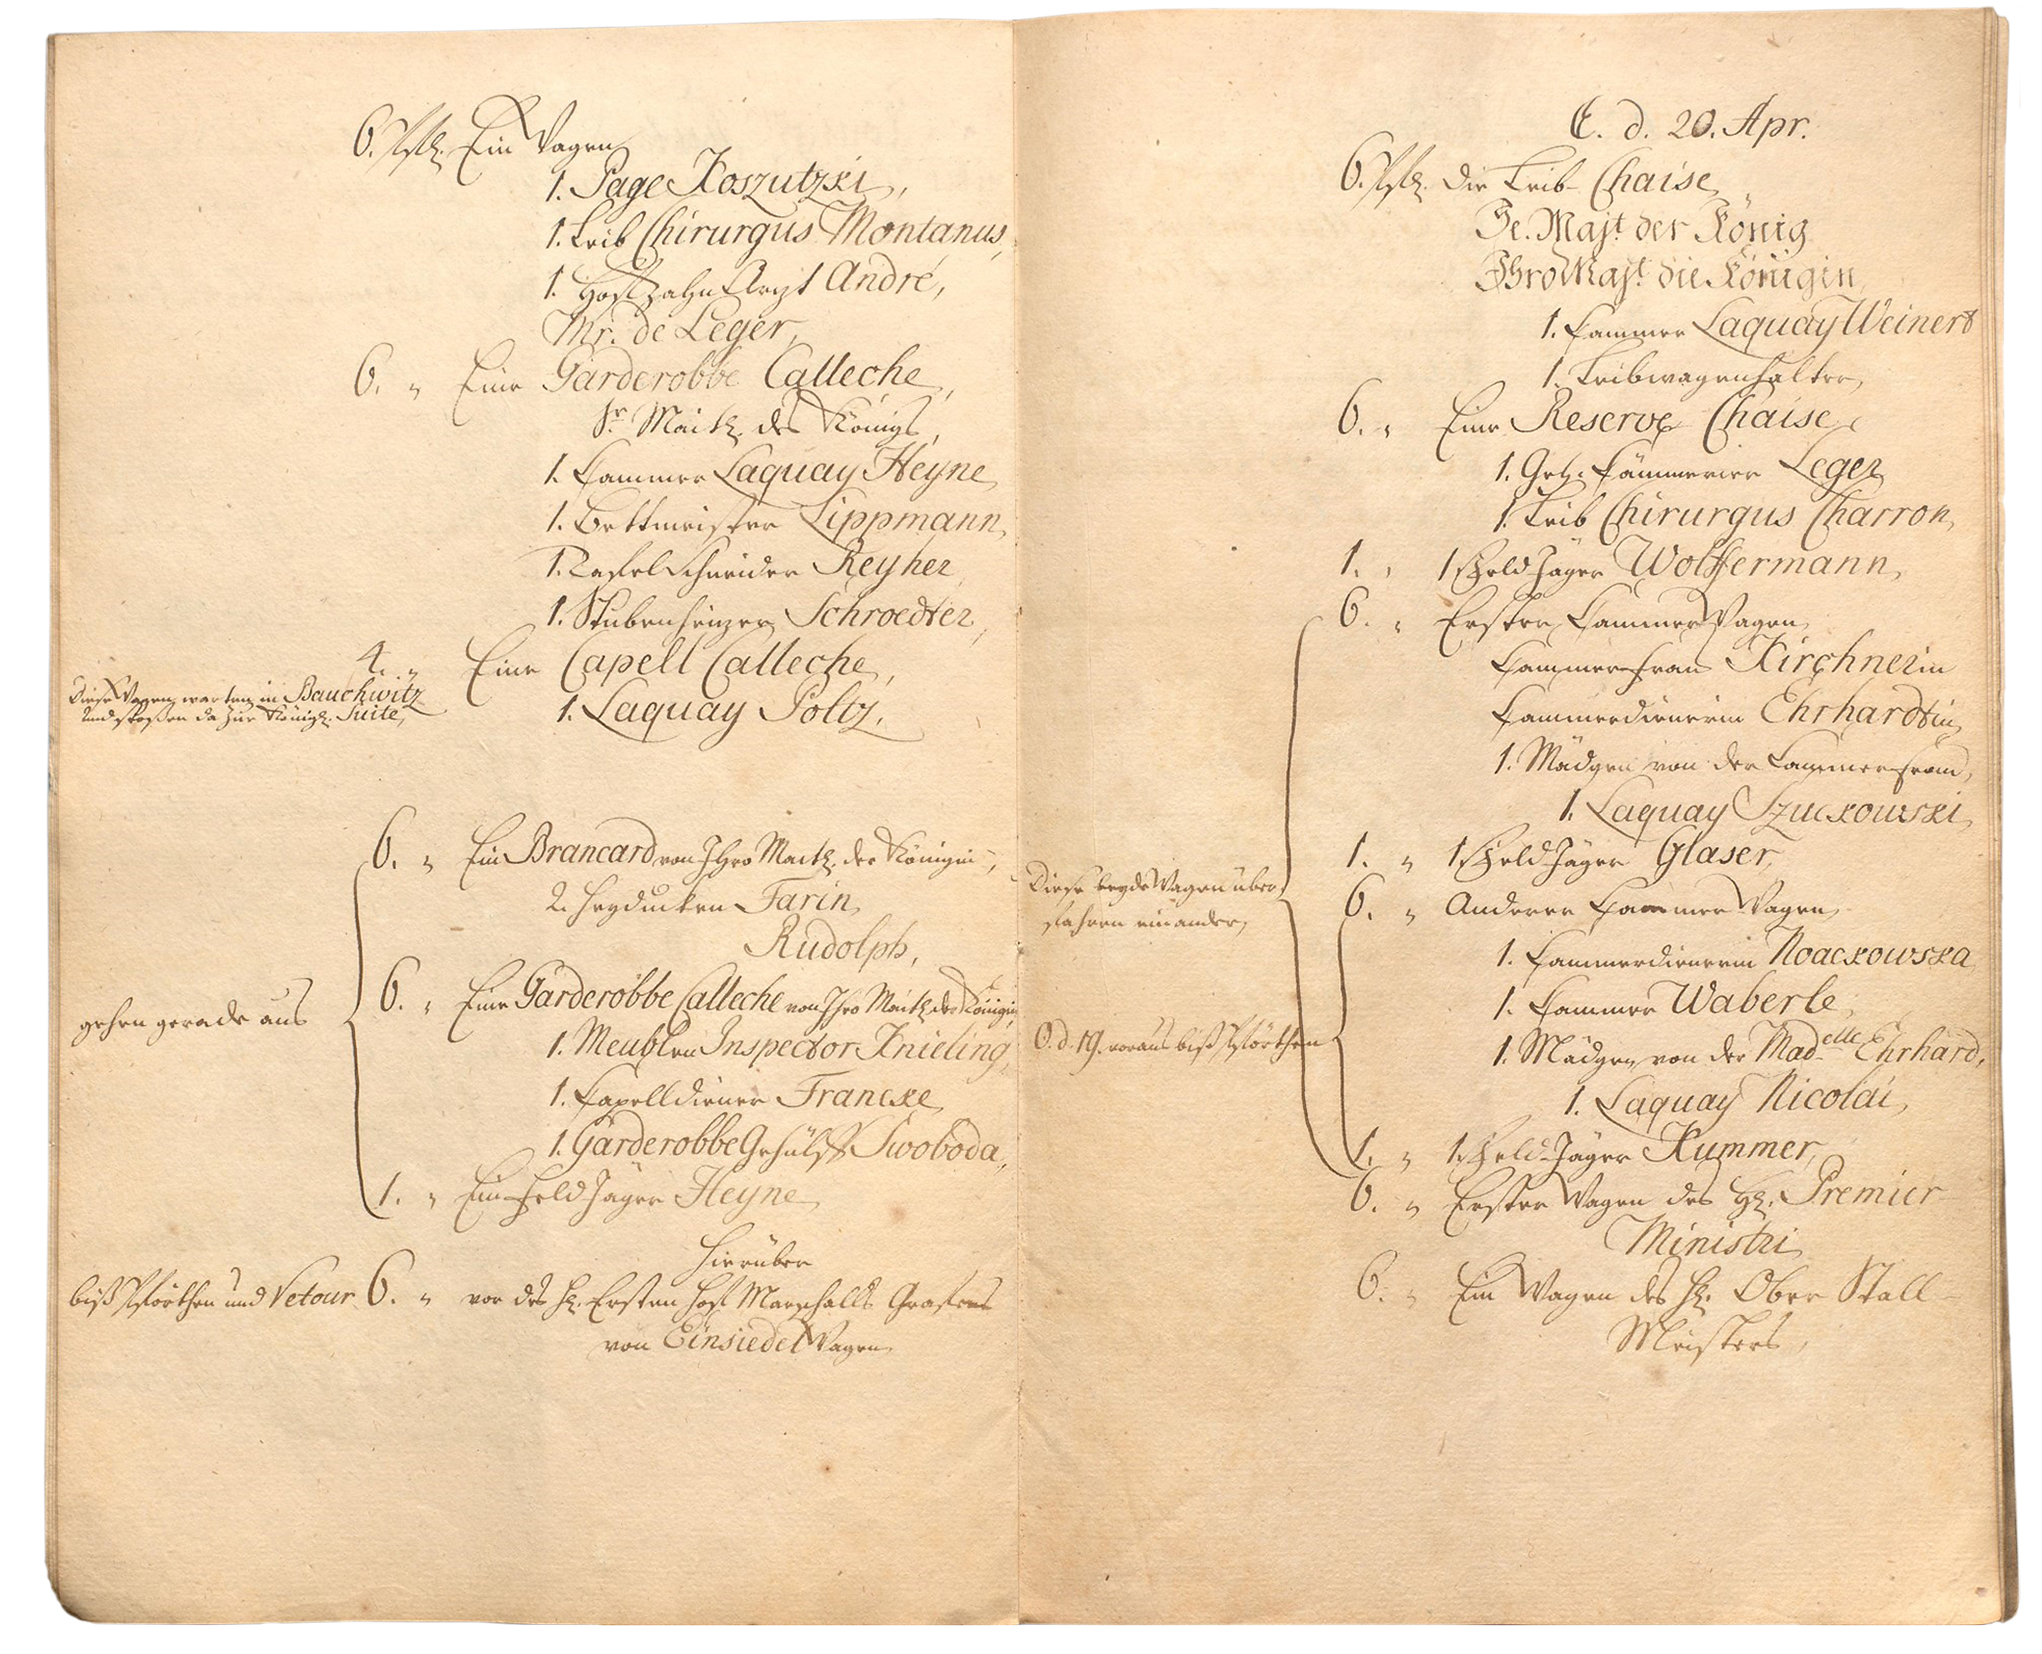 6. Pferde. Ein Wagen,
1. Page Koszutzki,
1. Leib Chirurgus Montanus,
1. Hof Zahn Arzt André,
Mr. de Leger,
6. " Eine Garderobbe Calleche,
Sr. Majth. des Königs,
1. Cammer Laquay Heyne,
1. Bettmeister Lippmann,
1. Tafelschneider Reyher
1. Stubenheizer Schroedter,
4. " Eine Capell Calleche,
Diese Wagen warten in Bauchwitz
und stoßen da zur Königl. Suite,
1. Laquay Poltz,
6. " Ein Brancard von Ihro Majth. der Königin,
2. Heyducken Farin,
Rudolph,
gehen gerade aus
6. " Eine Garderobbe Calleche von Ihro Majth. der Königin,
1. Meublen Inspector Knieling,
1. Capelldiener Francke,
1. Garderobbe Gehülff Swoboda,
1. " Ein Feld Jäger Heyne,
Hierüber
biß Pförthen und Retour 6. " vor des H. Ersten Hof Marschalls Grafens
von Einsiedel Wagen,
C. d. 20. Apr.
6. Pferde. Die Leib-Chaise,
Se. Majt. der König
Ihro Majt. die Königin,
1. Cammer Laquay Weinert
1. Leibwagenhalter,
6. " Eine Reserve Chaise,
1. Geh. Cämmerier Leger,
1. Leib Chirurgus Charron,
1. " 1. Feld Jäger Wolffermann,
6. " Erster Cammer Wagen,
Cammer-Frau Kirchnerin
Cammerdienerin Ehrhardtin,
1. Mädgen von der Cammer-Frau,
1. Laquay Szuckowski,
1. " 1. Feld Jäger Glaser,
Diese beyde Wagen über-
fahren einander,
6. " Anderer Cammer Wagen,
1. Cammerdienerin Noackowska
1. Cammer Waberle,
O. d. 19. voraus biß Pförthen
1. Mädgen von der Madelle Ehrhard,
1. Laquay Nicolai,
1. " 1. Feld-Jäger Kummer,
6. " Erster Wagen des H. Premier
Ministri
6. " Ein Wagen des H. Ober Stall-
Meisters,